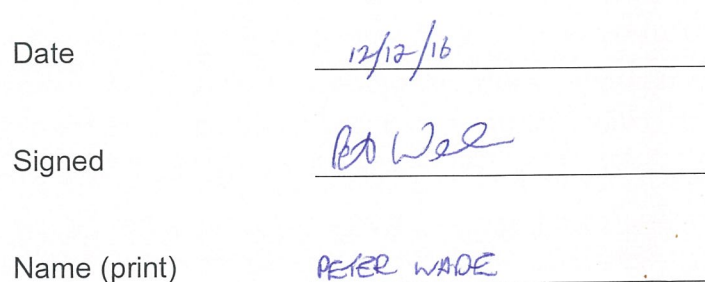 Date 12/12/16
Signed
Name (print) PETER WADE